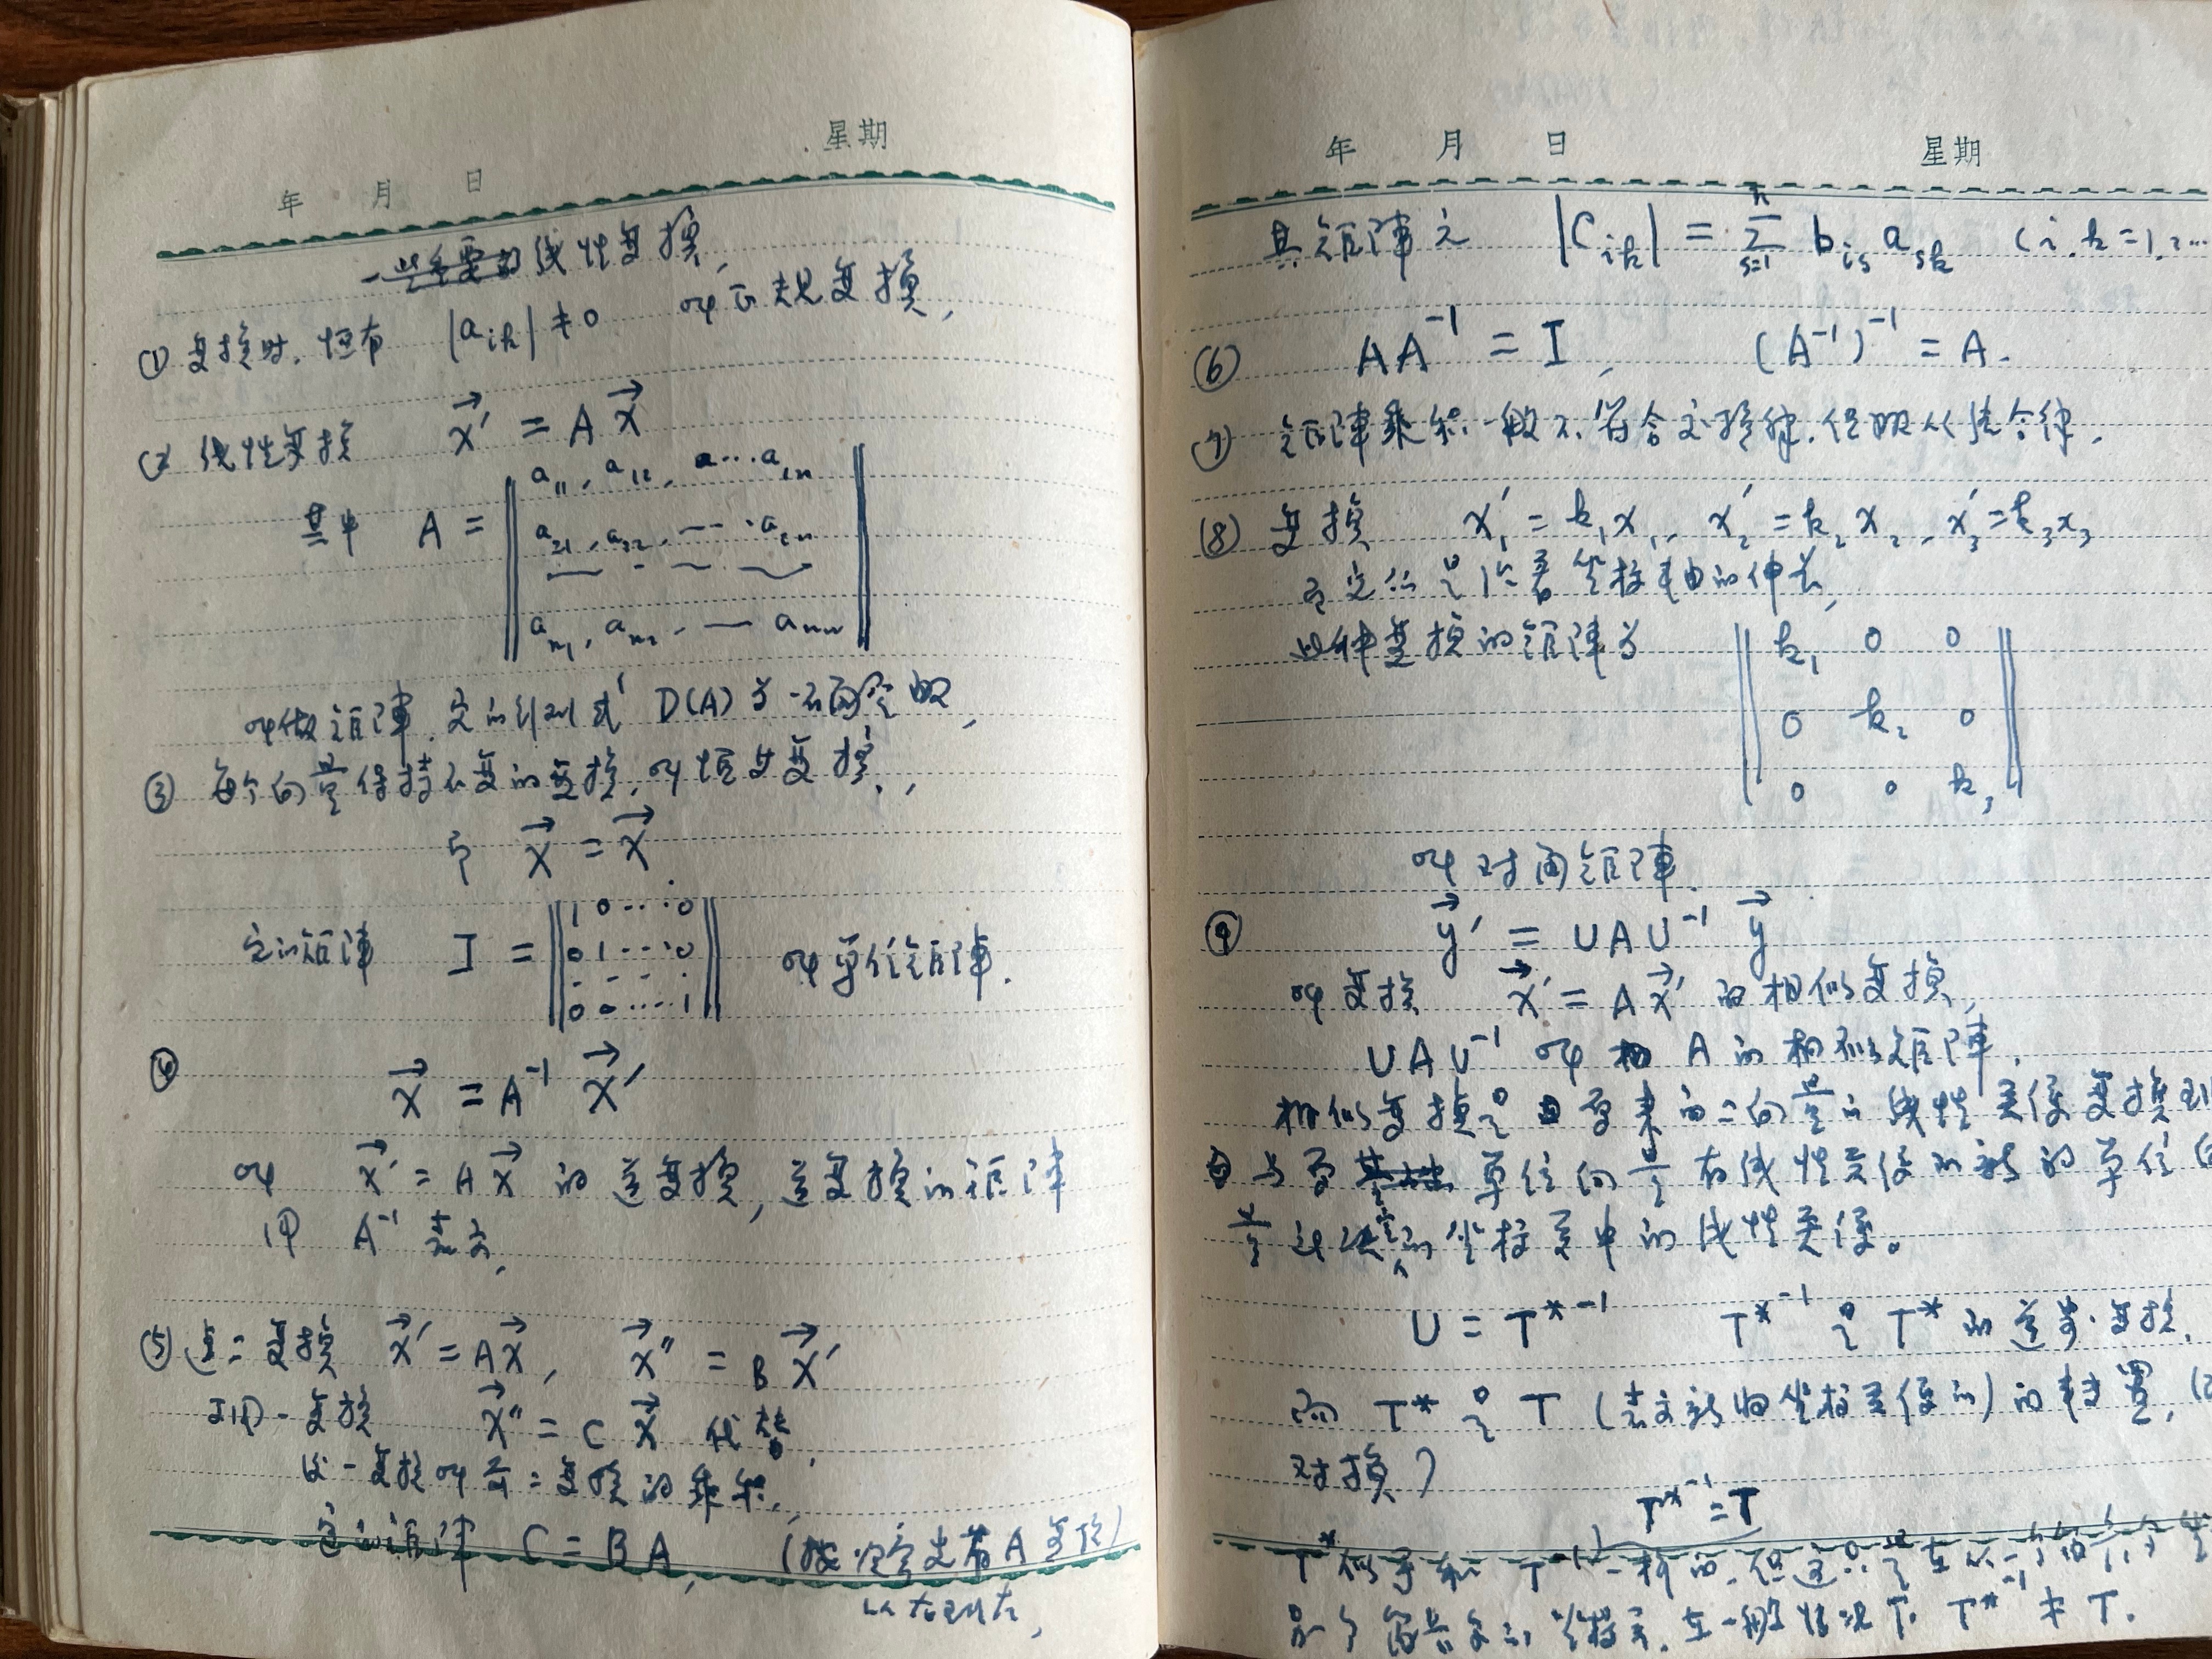 年 月 日 星期
一些重要的线性变换,
① 变换时,恒有 |aik| ≠ 0 叫正规变换,
(2 线性变换 x⃗′ = A x⃗
其中 A = ‖ a11, a12, a···a1n
a21, a22, ―···a2n
an1, an2, ― ann ‖
叫做矩陣,它的行列式 D(A) 为
③ 每个向量保持不变的变换,叫恒等变换,
即 x⃗ = x⃗
它的矩陣 I = ‖ 1 0···0
0 1···0
0 0····1 ‖ 叫单位矩陣.
④
x⃗ = A⁻¹ x⃗′
叫 x⃗′ = A x⃗ 的逆变换,逆变换的矩陣
用 A⁻¹ 表示,
⑤ 连二变换 x⃗′ = A x⃗, x⃗″ = B x⃗′
可用一变换 x⃗″ = C x⃗ 代替,
这一变换叫前二变换的乘积,
它的矩陣 C = B A, (按次序先有 A 变换)
从右到左,
年 月 日 星期
其矩陣之 |Cik| = Σ(s=1→n) bis ask (i.k=1,2···
⑥ AA⁻¹ = I, (A⁻¹)⁻¹ = A.
⑦ 矩陣乘积一般不符合交换律,但服从结合律,
(8) 变换 x′1 = k1x1, x′2 = k2x2, x′3 = k3x3
它定的是沿着坐标轴的伸长,
此种变换的矩陣为 ‖ k1 0 0
0 k2 0
0 0 k3 ‖
叫对角矩陣.
⑨ y⃗′ = UAU⁻¹ y⃗
叫变换 x⃗′ = A x⃗′ 的相似变换,
UAU⁻¹ 叫 A 的相似矩陣.
相似变换是由原来的二向量的线性关係变换到
由与原单位向量有线性关係的新的单位向
量决定的坐标系中的线性关係。
U = T*⁻¹ T*⁻¹ 是 T* 的逆变换,
而 T* 是 T (表示新旧坐标关係的) 的转置,(
对换)
T*⁻¹=T
T* 似乎和 T⁻¹ 一样的,但这只是在从一
另一个直角坐标系,在一般情况下 T*⁻¹ ≠ T.